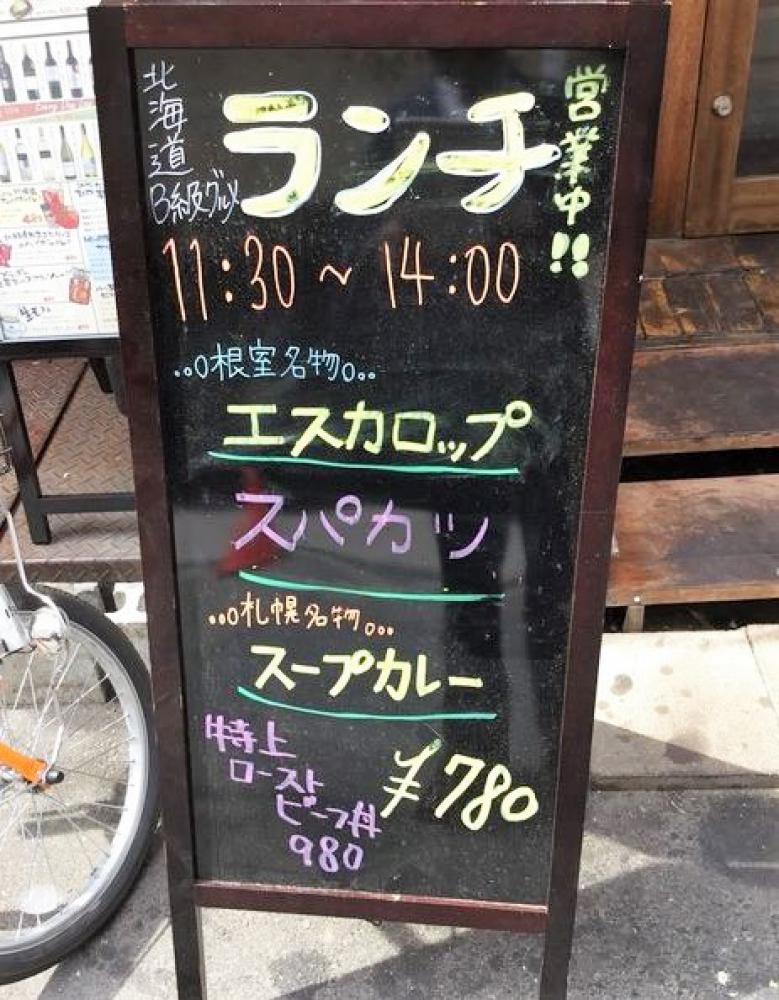 北海道
B級グルメ
ランチ
営業中!!
11:30 ~ 14:00
..o根室名物o..
エスカロップ
スパカツ
..o札幌名物o...
スープカレー
¥780
特上
ロースト
ビーフ丼
980